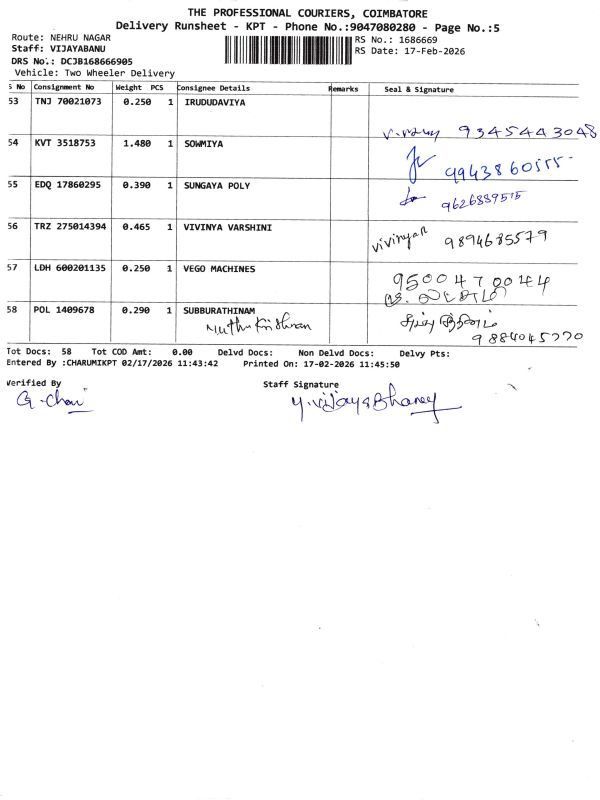 THE PROFESSIONAL COURIERS, COIMBATORE
Delivery Runsheet - KPT - Phone No.:9047080280 - Page No.:5
Route: NEHRU NAGAR
RS No.: 1686669
Staff: VIJAYABANU
RS Date: 17-Feb-2026
DRS No.: DCJB168666905
Vehicle: Two Wheeler Delivery
S No Consignment No Weight PCS Consignee Details Remarks Seal & Signature
53 TNJ 70021073 0.250 1 IRUDUDAVIYA
9345443048
54 KVT 3518753 1.480 1 SOWMIYA
9943860555
55 EDQ 17860295 0.390 1 SUNGAYA POLY
9626889515
56 TRZ 275014394 0.465 1 VIVINYA VARSHINI
9894685579
57 LDH 600201135 0.250 1 VEGO MACHINES
9500470044
58 POL 1409678 0.290 1 SUBBURATHINAM
Muthu Krishnan
Tot Docs: 58 Tot COD Amt: 0.00 Delvd Docs: Non Delvd Docs: Delvy Pts:
Entered By :CHARUMIKPT 02/17/2026 11:43:42 Printed On: 17-02-2026 11:45:50
Verified By Staff Signature